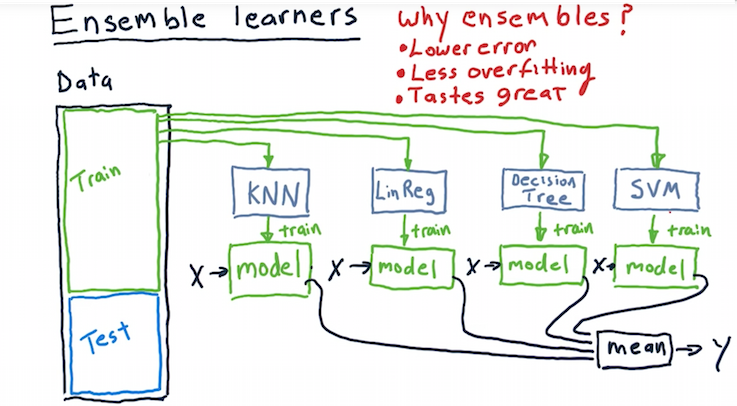 Ensemble learners
Why ensembles?
• Lower error
• Less overfitting
• Tastes great
Data
Train
Test
KNN
LinReg
Decision
Tree
SVM
train
train
train
train
X
model
X
model
X
model
X
model
mean
Y